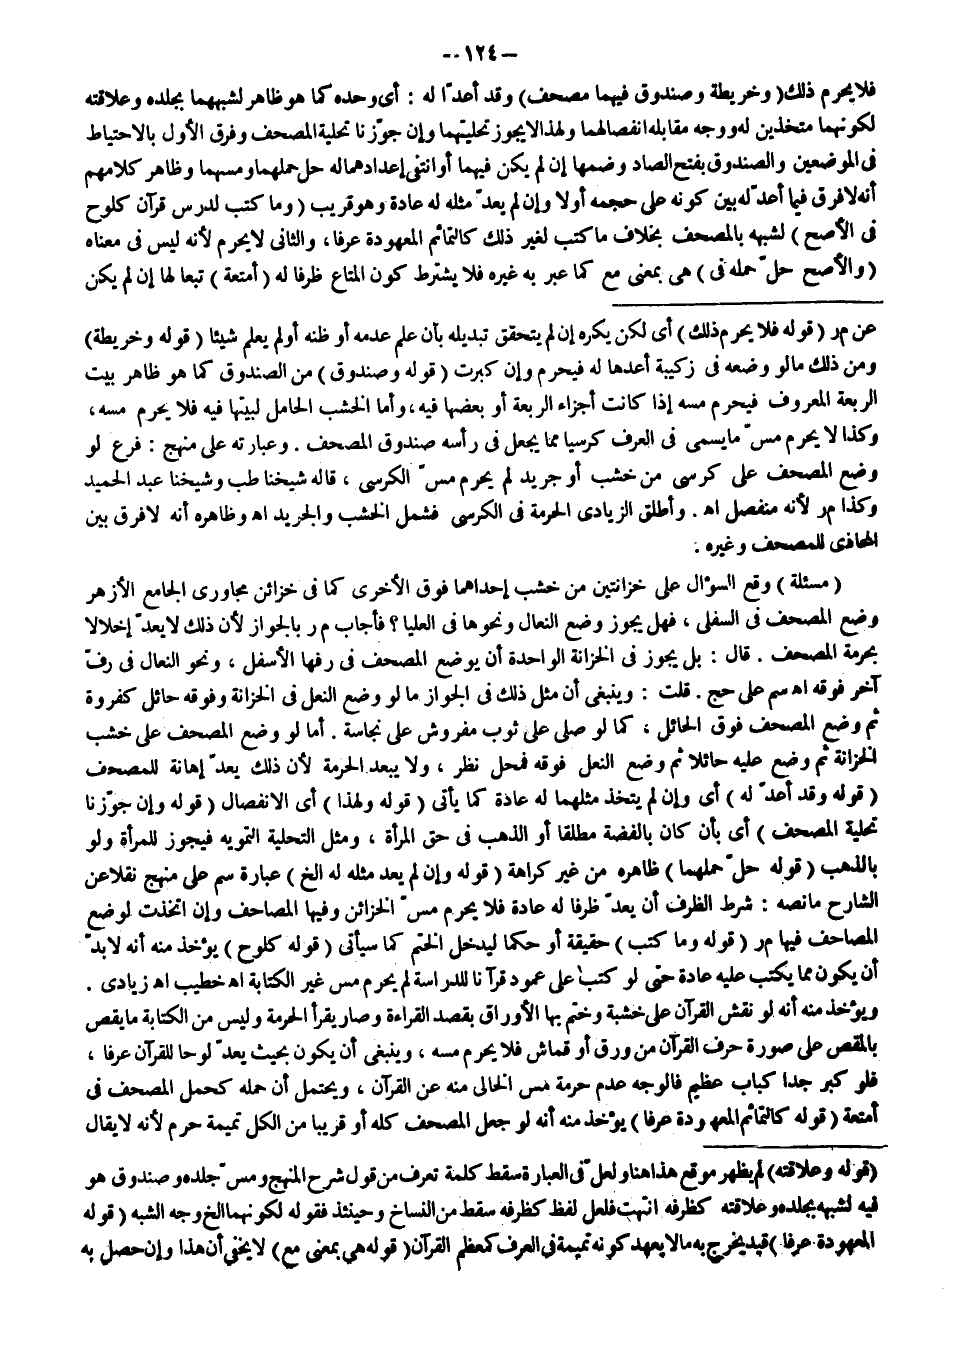 – ١٢٤ –
فلا يحرم ذلك ( وخريطة وصندوق فيهما مصحف ) وقد أعدّا له : أى وحده كما هو ظاهر لشبههما بجلده وعلاقته
لكونهما متخذين له ووجه مقابله انفصالهما ولهذا لا يجوز تحليتهما وإن جوّزنا تحلية المصحف وفرق الأول بالاحتياط
فى الموضعين والصندوق بفتح الصاد وضمها إن لم يكن فيهما أو انتفى إعدادهما له حل حملهما ومسهما وظاهر كلامهم
أنه لا فرق فيما أعدّ له بين كونه على حجمه أولا وإن لم يعدّ مثله له عادة وهو قريب ( وما كتب لدرس قرآن كلوح
فى الأصح ) لشبهه بالمصحف بخلاف ما كتب لغير ذلك كالتمائم المعهودة عرفا ، والثانى لا يحرم لأنه ليس فى معناه
( والأصح حلّ حمله فى ) هى بمعنى مع كما عبر به غيره فلا يشترط كون المتاع ظرفا له ( أمتعة ) تبعا لها إن لم يكن
عن مر ( قوله فلا يحرم ذلك ) أى لكن يكره إن لم يتحقق تبديله بأن علم عدمه أو ظنه أو لم يعلم شيئا ( قوله وخريطة )
ومن ذلك ما لو وضعه فى زكيبة أعدها له فيحرم وإن كبرت ( قوله وصندوق ) من الصندوق كما هو ظاهر بيت
الربعة المعروف فيحرم مسه إذا كانت أجزاء الربعة أو بعضها فيه ، وأما الخشب الحامل لبيتها فيه فلا يحرم مسه ،
وكذا لا يحرم مسّ ما يسمى فى العرف كرسيا مما يجعل فى رأسه صندوق المصحف . وعبارته على منهج : فرع لو
وضع المصحف على كرسى من خشب أو جريد لم يحرم مسّ الكرسى ، قاله شيخنا طب وشيخنا عبد الحميد
وكذا مر لأنه منفصل اه . وأطلق الزيادى الحرمة فى الكرسى فشمل الخشب والجريد اه وظاهره أنه لا فرق بين
المحاذى للمصحف وغيره .
( مسئلة ) وقع السؤال على خزانتين من خشب إحداهما فوق الأخرى كما فى خزائن مجاورى الجامع الأزهر
وضع المصحف فى السفلى ، فهل يجوز وضع النعال ونحوها فى العليا ؟ فأجاب مر بالجواز لأن ذلك لا يعدّ إخلالا
بحرمة المصحف . قال : بل يجوز فى الخزانة الواحدة أن يوضع المصحف فى رفها الأسفل ، ونحو النعال فى رفّ
آخر فوقه اه سم على حج . قلت : وينبغى أن مثل ذلك فى الجواز ما لو وضع النعل فى الخزانة وفوقه حائل كفروة
ثم وضع المصحف فوق الحائل ، كما لو صلى على ثوب مفروش على نجاسة . أما لو وضع المصحف على خشب
الخزانة ثم وضع عليه حائلا ثم وضع النعل فوقه فمحل نظر ، ولا يبعد الحرمة لأن ذلك يعدّ إهانة للمصحف
( قوله وقد أعدّ له ) أى وإن لم يتخذ مثلهما له عادة كما يأتى ( قوله ولهذا ) أى الانفصال ( قوله وإن جوّزنا
تحلية المصحف ) أى بأن كان بالفضة مطلقا أو الذهب فى حق المرأة ، ومثل التحلية التمويه فيجوز للمرأة ولو
بالذهب ( قوله حلّ حملهما ) ظاهره من غير كراهة ( قوله وإن لم يعد مثله له الخ ) عبارة سم على منهج نقلا عن
الشارح ما نصه : شرط الظرف أن يعدّ ظرفا له عادة فلا يحرم مسّ الخزائن وفيها المصاحف وإن اتخذت لوضع
المصاحف فيها مر ( قوله وما كتب ) حقيقة أو حكما ليدخل الختم كما سيأتى ( قوله كلوح ) يؤخذ منه أنه لا بدّ
أن يكون مما يكتب عليه عادة حتى لو كتب على عمود قرآنا للدراسة لم يحرم مس غير الكتابة اه خطيب اه زيادى .
ويؤخذ منه أنه لو نقش القرآن على خشبة وختم بها الأوراق بقصد القراءة وصار يقرأ الحرمة وليس من الكتابة ما يقص
بالمقص على صورة حرف القرآن من ورق أو قماش فلا يحرم مسه ، وينبغى أن يكون بحيث يعدّ لوحا للقرآن عرفا ،
فلو كبر جدا كباب عظيم فالوجه عدم حرمة مس الخالى منه عن القرآن ، ويحتمل أن حمله كحمل المصحف فى
أمتعة ( قوله كالتمائم المعهودة عرفا ) يؤخذ منه أنه لو جعل المصحف كله أو قريبا من الكل تميمة حرم لأنه لا يقال
( قوله وعلاقته ) لم يظهر موقع هذا هنا ولعلّ فى العبارة سقط كلمة تعرف من قول شرح المنهج ومسّ جلده وصندوق هو
فيه لشبهه بجلده وعلاقته كظرفه انتهت فلعل لفظ كظرفه سقط من النساخ وحينئذ فقوله لكونهما الخ وجه الشبه ( قوله
المعهودة عرفا ) قيد يخرج به ما لا يعهد كونه تميمة فى العرف كمعظم القرآن ( قوله هى بمعنى مع ) لا يخفى أن هذا وإن حصل به